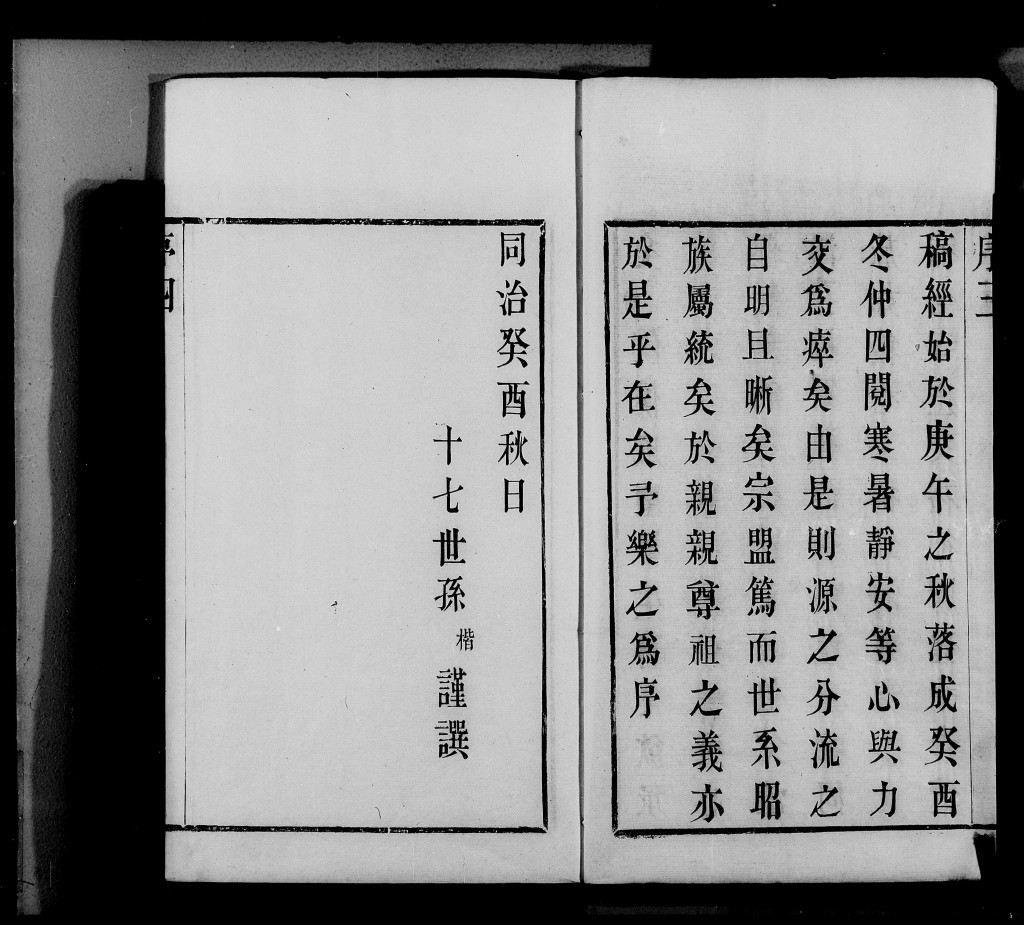 序三
稿經始於庚午之秋落成癸酉
冬仲四閱寒暑靜安等心與力
交爲瘁矣由是則源之分流之
自明且晰矣宗盟篤而世系昭
族屬統矣於親親尊祖之義亦
於是乎在矣予樂之爲序
同治癸酉秋日
十七世孫楷謹譔
序四